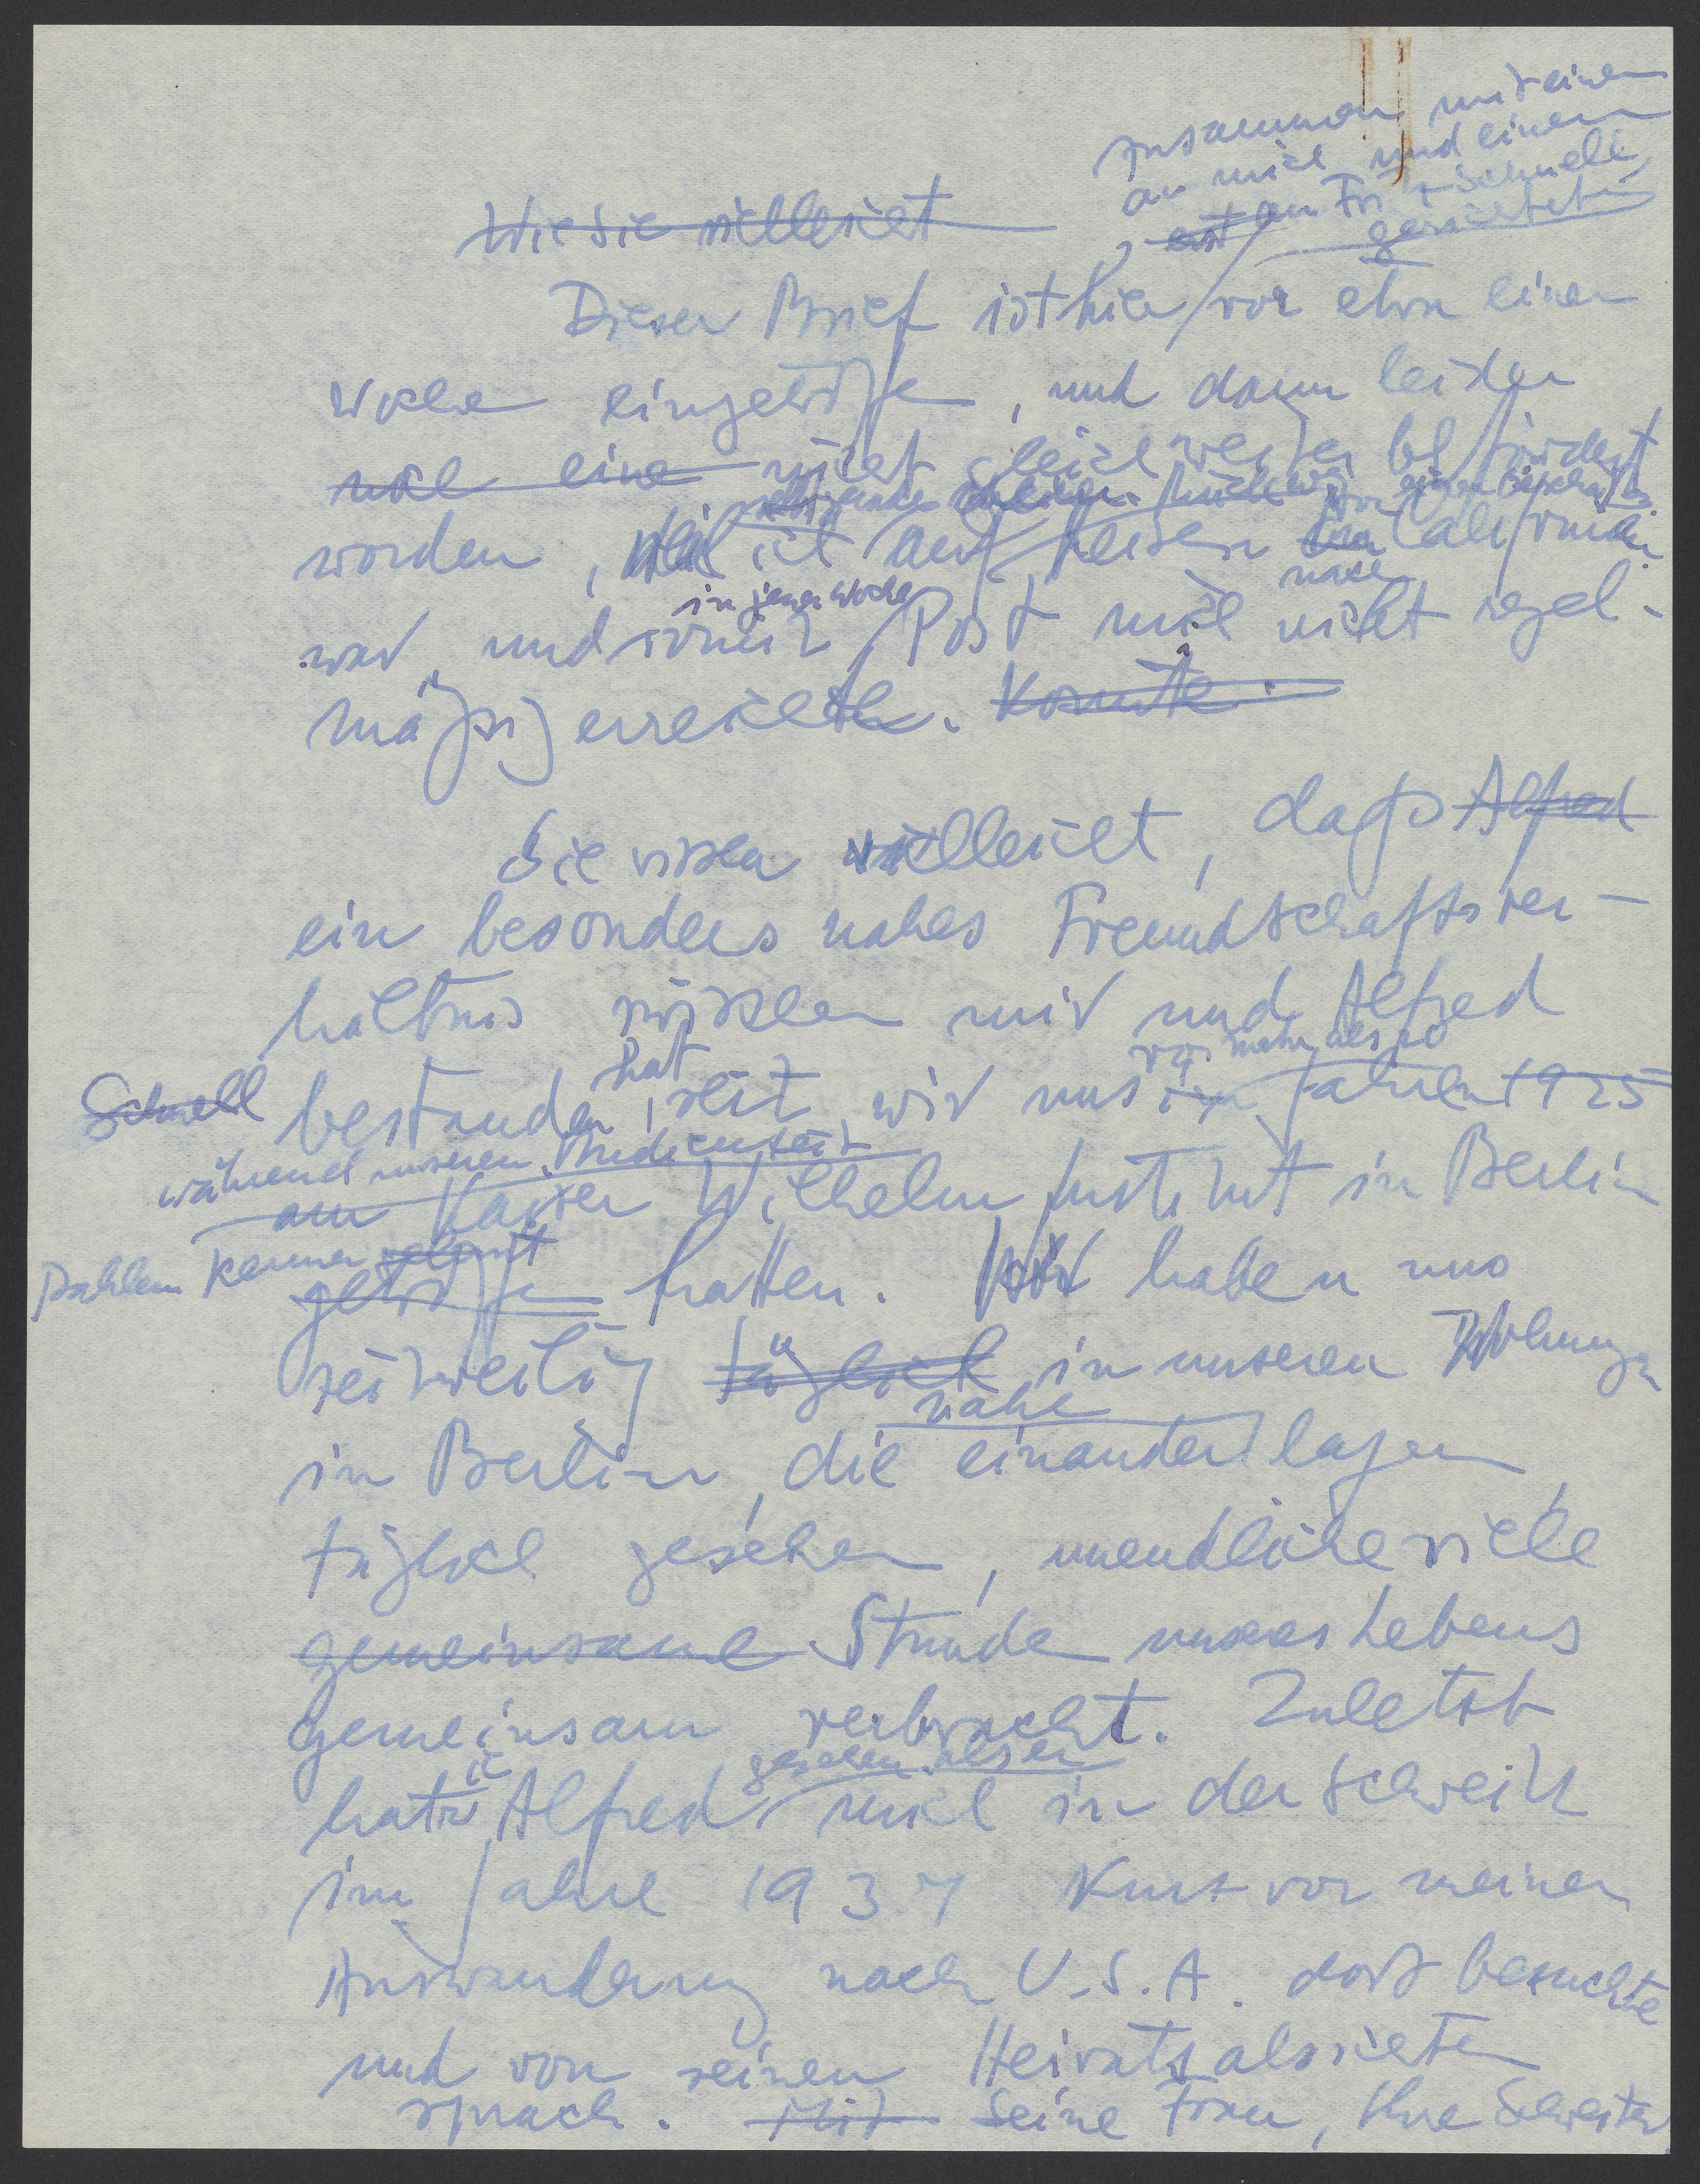 zusammen mit einem
an mich und einem
, erst an Fritz Schnell,
gerichtet
Wie Sie vielleicht
Dieser Brief ist hier vor etwa einer
Woche eingetroffen, und dann leider
noch eine nicht gleich weiter befördert
worden, weil ich auf Reisen von Californien
nach
in jener Woche
war, und somit Post mich nicht regel-
mäßig erreichte. Konnte.
Sie wissen vielleicht, dass Alfred
ein besonders nahes Freundschaftsver-
hältnis zwischen mir und Alfred
hat vor mehr als 20
Schnell bestanden, seit wir uns im Jahren 1925
während unserer Studienzeit
am Kaiser Wilhelm Institut in Berlin
Dahlem kennen gelernt
getroffen hatten. Wir haben uns
zeitweilig täglich in unseren Wohnungen
nahe
in Berlin, die einander lagen,
täglich gesehen, unendliche viele
gemeinsame Stunde unseres Lebens
gemeinsam verbracht. Zuletzt
ich gesehen, als er
hatte Alfred mich in der Schweitz
im Jahre 1937 kurz vor meiner
Auswanderung nach U.S.A. dort besuchte
und von seinen Heiratsabsichten
sprach. Mit Seine Frau, Ihre Schwester